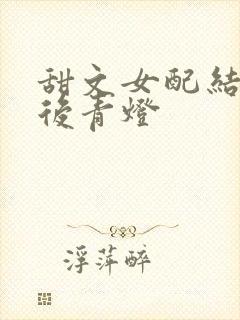 甜文女配結
後青燈
浮萍醉